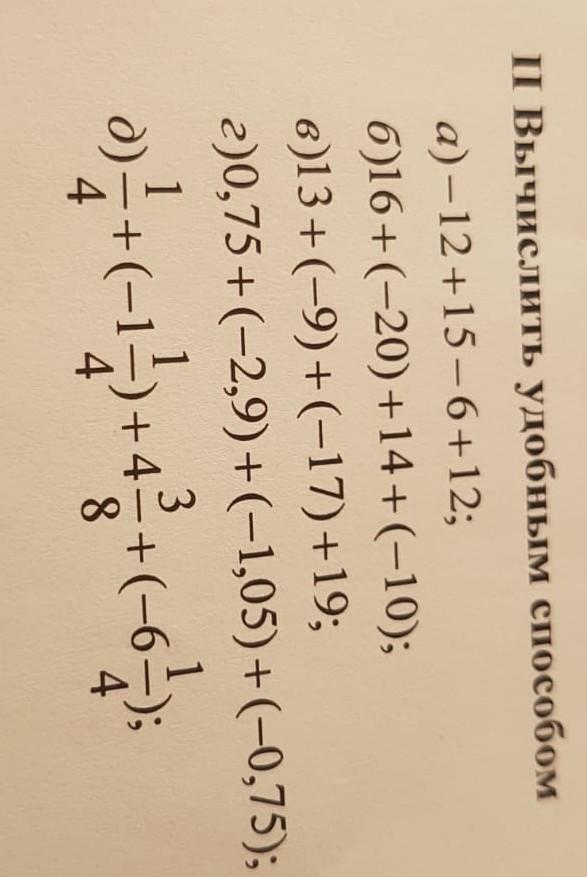 II Вычислить удобным способом
а)−12+15−6+12;
б)16+(−20)+14+(−10);
в)13+(−9)+(−17)+19;
г)0,75+(−2,9)+(−1,05)+(−0,75);
д)1/4+(−1 1/4)+4 3/8+(−6 1/4);